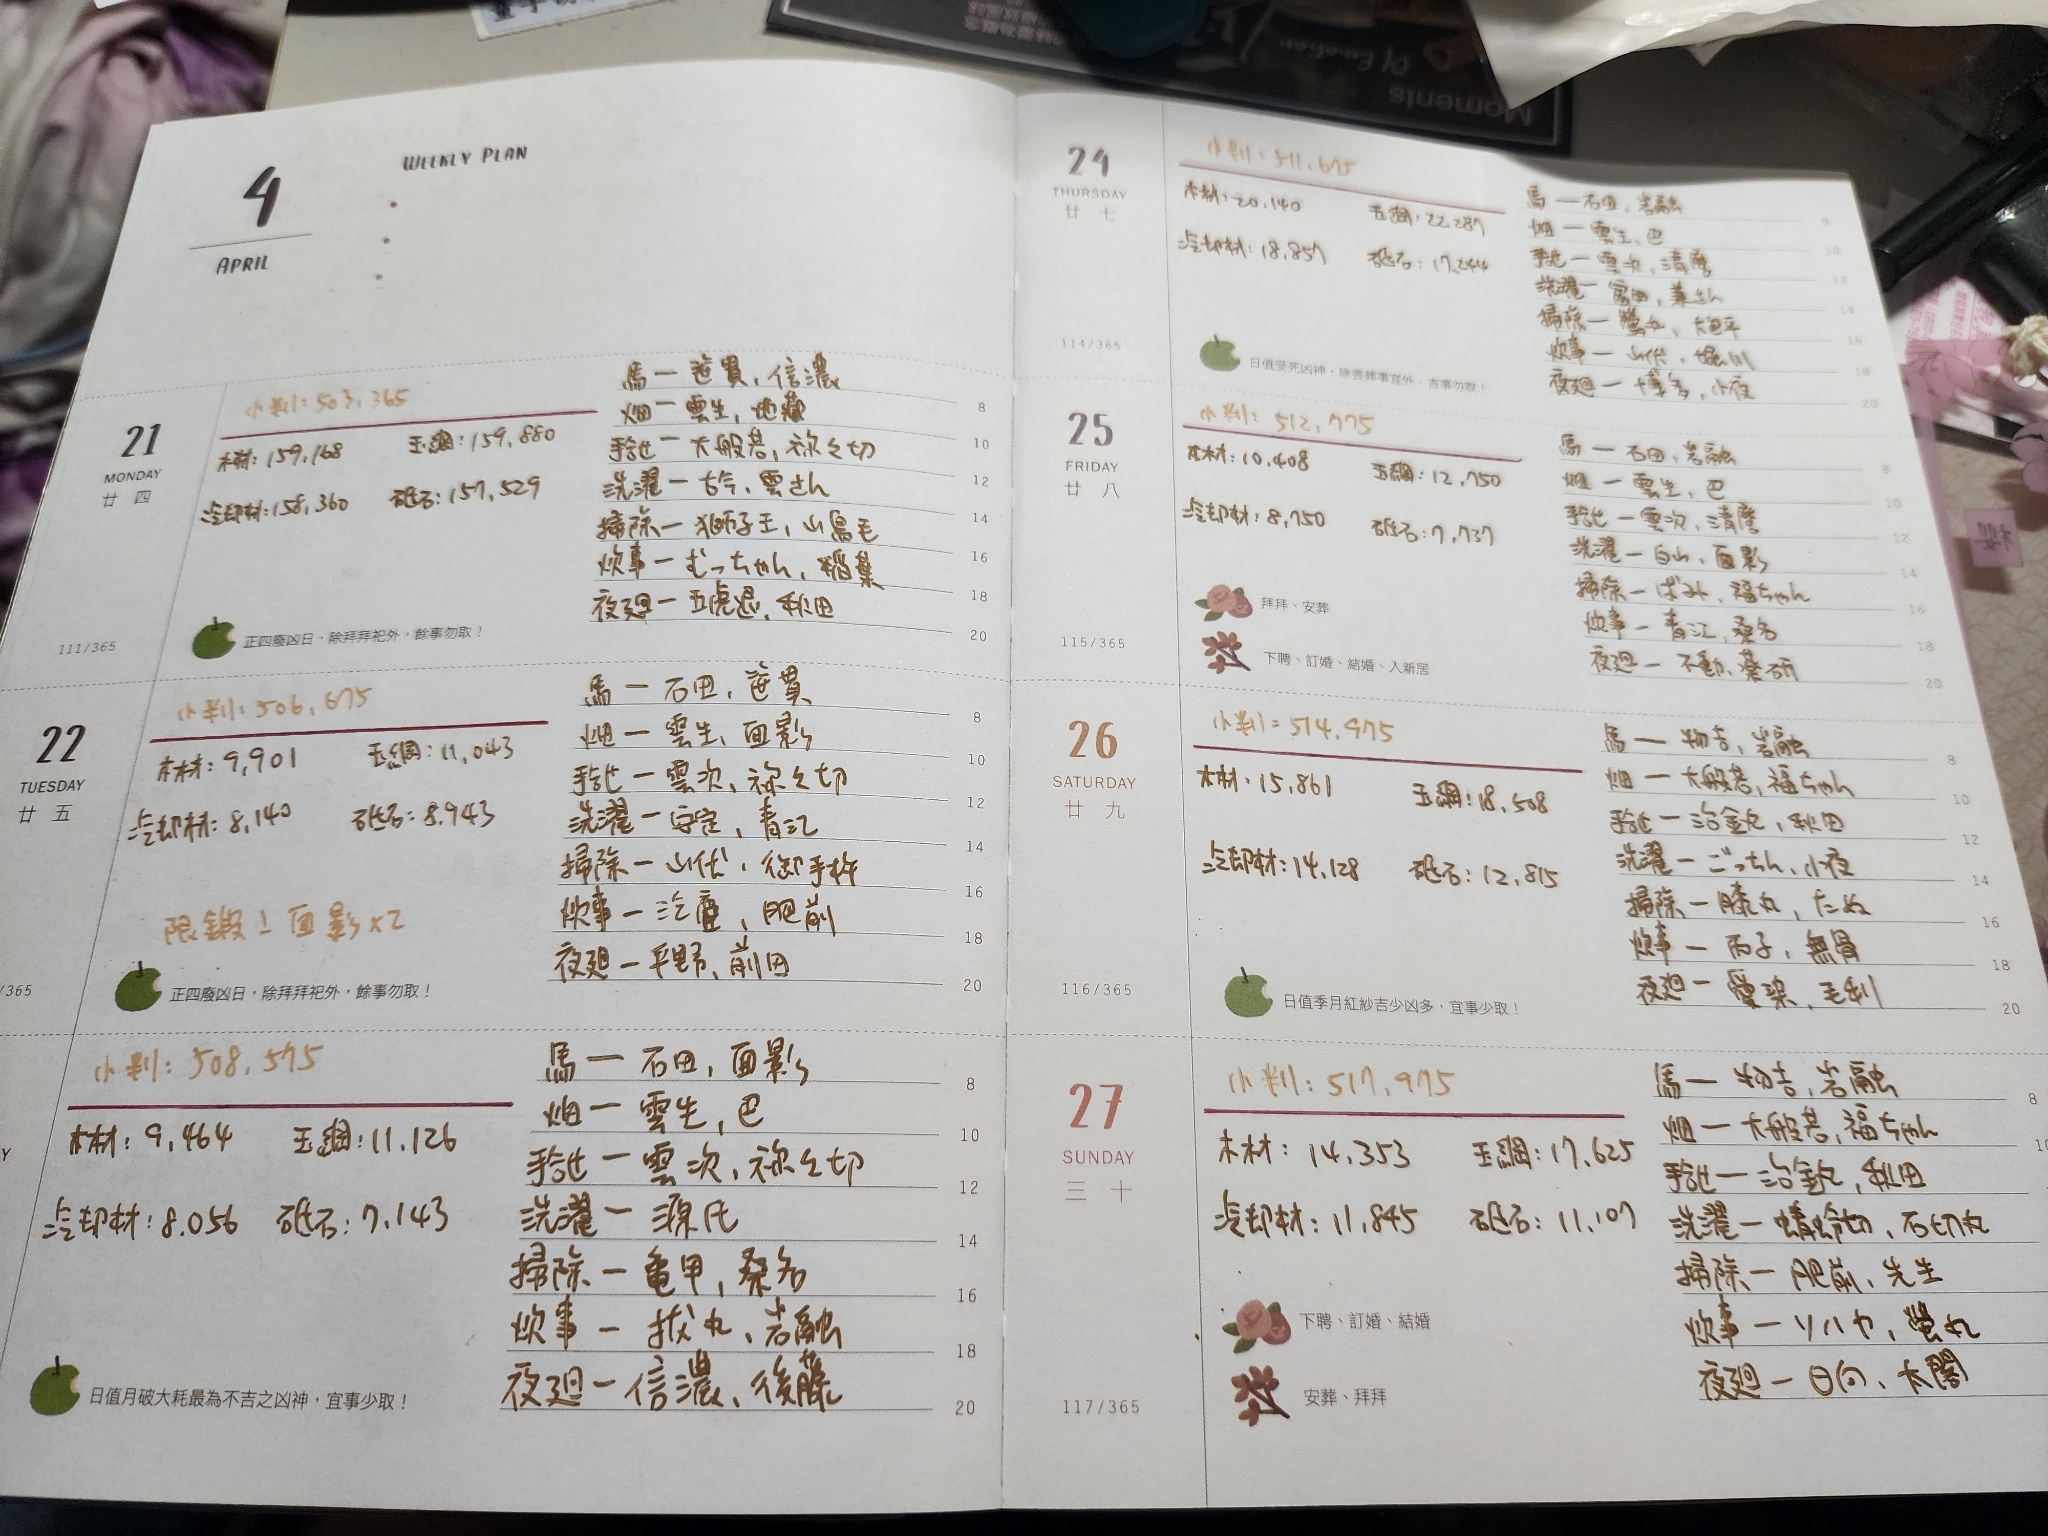 4
APRIL
WEEKLY PLAN
21
MONDAY
廿四
111/365
小判:503,365
木材:159,168 玉鋼:159,880
冷却材:158,360 砥石:157,529
正四廢凶日,除拜拜祀外,餘事勿取!
馬一笹貫,信濃
畑一雲生,地蔵
手合せ一大般若,祢々切
洗濯一古今,雲さん
掃除一獅子王,山鳥毛
炊事一むっちゃん,稲葉
夜廻一五虎退,秋田
8
10
12
14
16
18
20
22
TUESDAY
廿五
/365
小判:506,675
木材:9,901 玉鋼:11,043
冷却材:8,140 砥石:8,943
限鍛!面影x2
正四廢凶日,除拜拜祀外,餘事勿取!
馬一石田,笹貫
畑一雲生,面影
手合せ一雲次,祢々切
洗濯一安定,青江
掃除一山伏,御手杵
炊事一 肥前
夜廻一平野,前田
8
10
12
14
16
18
20
Y
小判:508,575
木材:9,464 玉鋼:11,126
冷却材:8,056 砥石:7,143
日值月破大耗最為不吉之凶神,宜事少取!
馬一石田,面影
畑一雲生,巴
手合せ一雲次,祢々切
洗濯一源氏
掃除一亀甲,桑名
炊事一抜丸,岩融
夜廻一信濃,後藤
8
10
12
14
16
18
20
24
THURSDAY
廿七
114/365
小判:511,675
木材:20,140 玉鋼:22,287
冷却材:18,857 砥石:17,244
日值受死凶神,除喪葬事宜外,吉事勿取!
馬一石田,岩融
畑一雲生,巴
手合せ一雲次,清麿
洗濯一富田,兼さん
掃除一螢丸,大包平
炊事一山伏,堀川
夜廻一博多,小夜
8
10
12
14
16
18
20
25
FRIDAY
廿八
115/365
小判:512,775
木材:10,408 玉鋼:12,750
冷却材:8,750 砥石:7,737
拜拜、安葬
下聘、訂婚、結婚、入新居
馬一石田,岩融
畑一雲生,巴
手合せ一雲次,清麿
洗濯一白山,面影
掃除一ばみ,福ちゃん
炊事一青江,桑名
夜廻一不動,薬研
8
10
12
14
16
18
20
26
SATURDAY
廿九
116/365
小判:514,975
木材:15,861 玉鋼:18,508
冷却材:14,128 砥石:12,815
日值季月紅紗吉少凶多,宜事少取!
馬一物吉,岩融
畑一大般若,福ちゃん
手合せ一治金丸,秋田
洗濯一ごっちん,小夜
掃除一膝丸,たぬ
炊事一丙子,無骨
夜廻一愛染,毛利
8
10
12
14
16
18
20
27
SUNDAY
三十
117/365
小判:517,975
木材:14,353 玉鋼:17,625
冷却材:11,845 砥石:11,107
下聘、訂婚、結婚
安葬、拜拜
馬一物吉,岩融
畑一大般若,福ちゃん
手合せ一治金丸,秋田
洗濯一蜻蛉切,石切丸
掃除一肥前,先生
炊事一ソハヤ,螢丸
夜廻一日向,太閤
8
10
Moments
Of Emotion